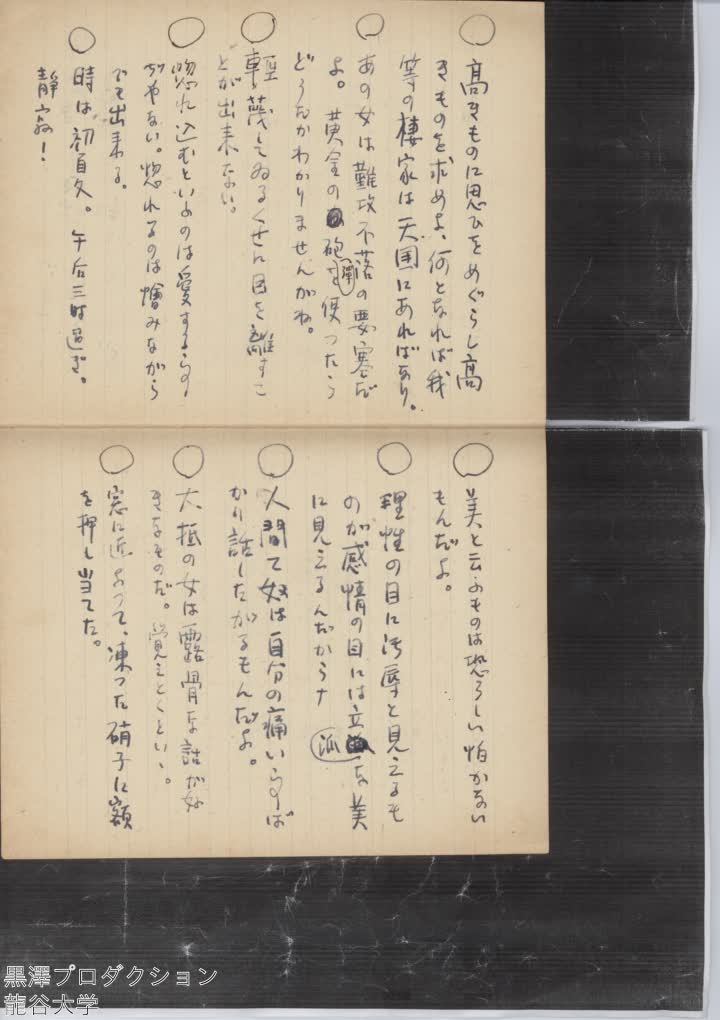 ○ 高きものに思ひをめぐらし高
きものを求めよ、何となれば我
等の棲家は天国にあればなり。
○ あの女は難攻不落の要塞だ
よ。黄金の砲弾を使つたら
どうだかわかりませんがね。
○ 軽蔑してゐるくせに目を離すこ
とが出来ない。
○ 惚れ込むといふのは愛する事
ぢやない。惚れるのは憎みながら
でも出来る。
○ 時は、初夏。午后三時過ぎ。
静寂!
○ 美と云ふものは恐ろしい怕かない
もんだよ。
○ 理性の目に汚辱と見えるも
のが感情の目には立派な美
に見えるんだからナ
○ 人間て奴は自分の痛い事ば
かり話したがるもんだよ。
○ 大抵の女は露骨な話が好
きなものだ。覚えとくといゝ。
○ 窓に近よつて、凍つた硝子に額
を押し当てた。
黒澤プロダクション
龍谷大学